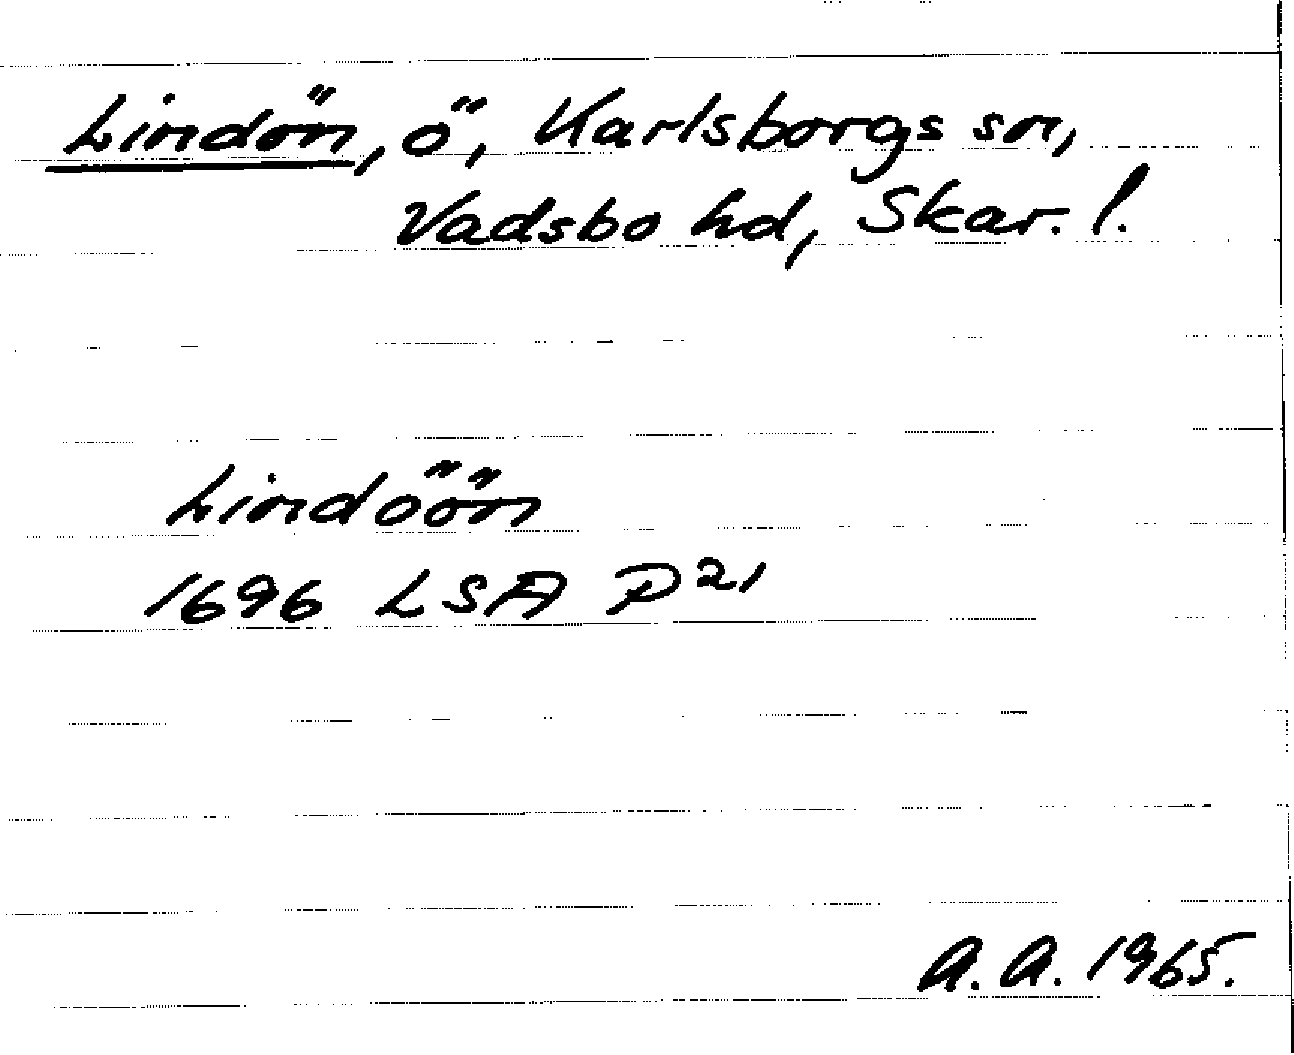 Lindön, ö, Karlsborgs sn,
Vadsbo hd, Skar. l.
Lindöön
1696 LSA P21
A. A. 1965.